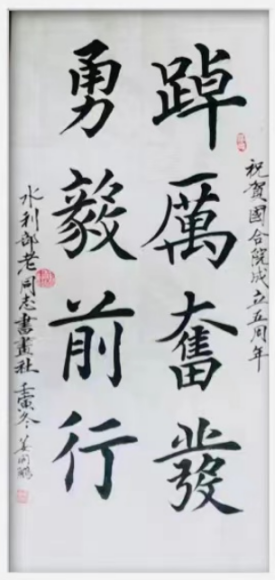 祝賀國合院成立五周年
踔厲奮發
勇毅前行
水利部老同志書畫社 壬寅冬